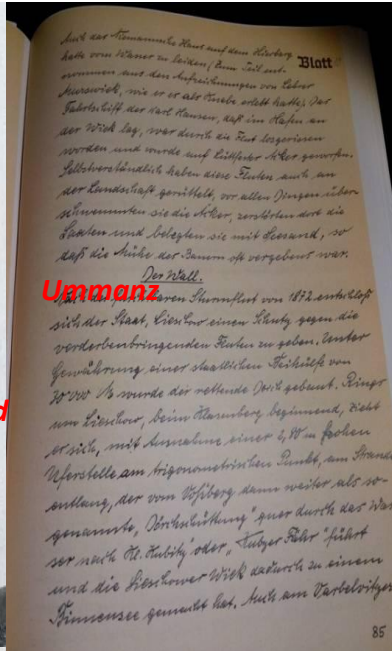 Auch das Niemannsche Haus auf dem Hierberg
Blatt
hatte vom Wasser zu leiden (zum Teil ent-
nommen aus den Aufzeichnungen von Lehrer
wie er es als Knabe erlebt hatte). Das
Fahrtschiff der Karl Hansen, daß im Hafen an
der Wiek lag, war durch die Flut losgerissen
worden und wurde auf Acker geworfen.
Selbstverständlich haben diese Fluten auch an
der Landschaft gerüttelt, vor allen Dingen über-
schwemmten sie die Äcker, zerstörten dort die
Saaten und belegten sie mit Seesand, so
daß die Mühe der Bauern oft vergebens war.
Der Wall.
Ummanz
Sturmflut von 1872 entschloß
sich der Staat, Lieschow einen Schutz gegen die
verderbenbringenden Fluten zu geben. Unter
Gewährung einer staatlichen Beihülfe von
30 000 M wurde der rettende Deich gebaut. Rings
um Lieschow, beim beginnend, zieht
er sich, mit Ausnahme einer 2,80 m hohen
Uferstelle am trigonometrischen Punkt, am Strande
entlang, der vom Voßberg dann weiter als so-
genannte „Deichschüttung" quer durch das Was-
ser nach Kl. Kubitz oder „Kubzer Fähr" führt
und die Lieschower Wiek dadurch zu einem
Binnensee gemacht hat. Auch am Varbelvitzer
85